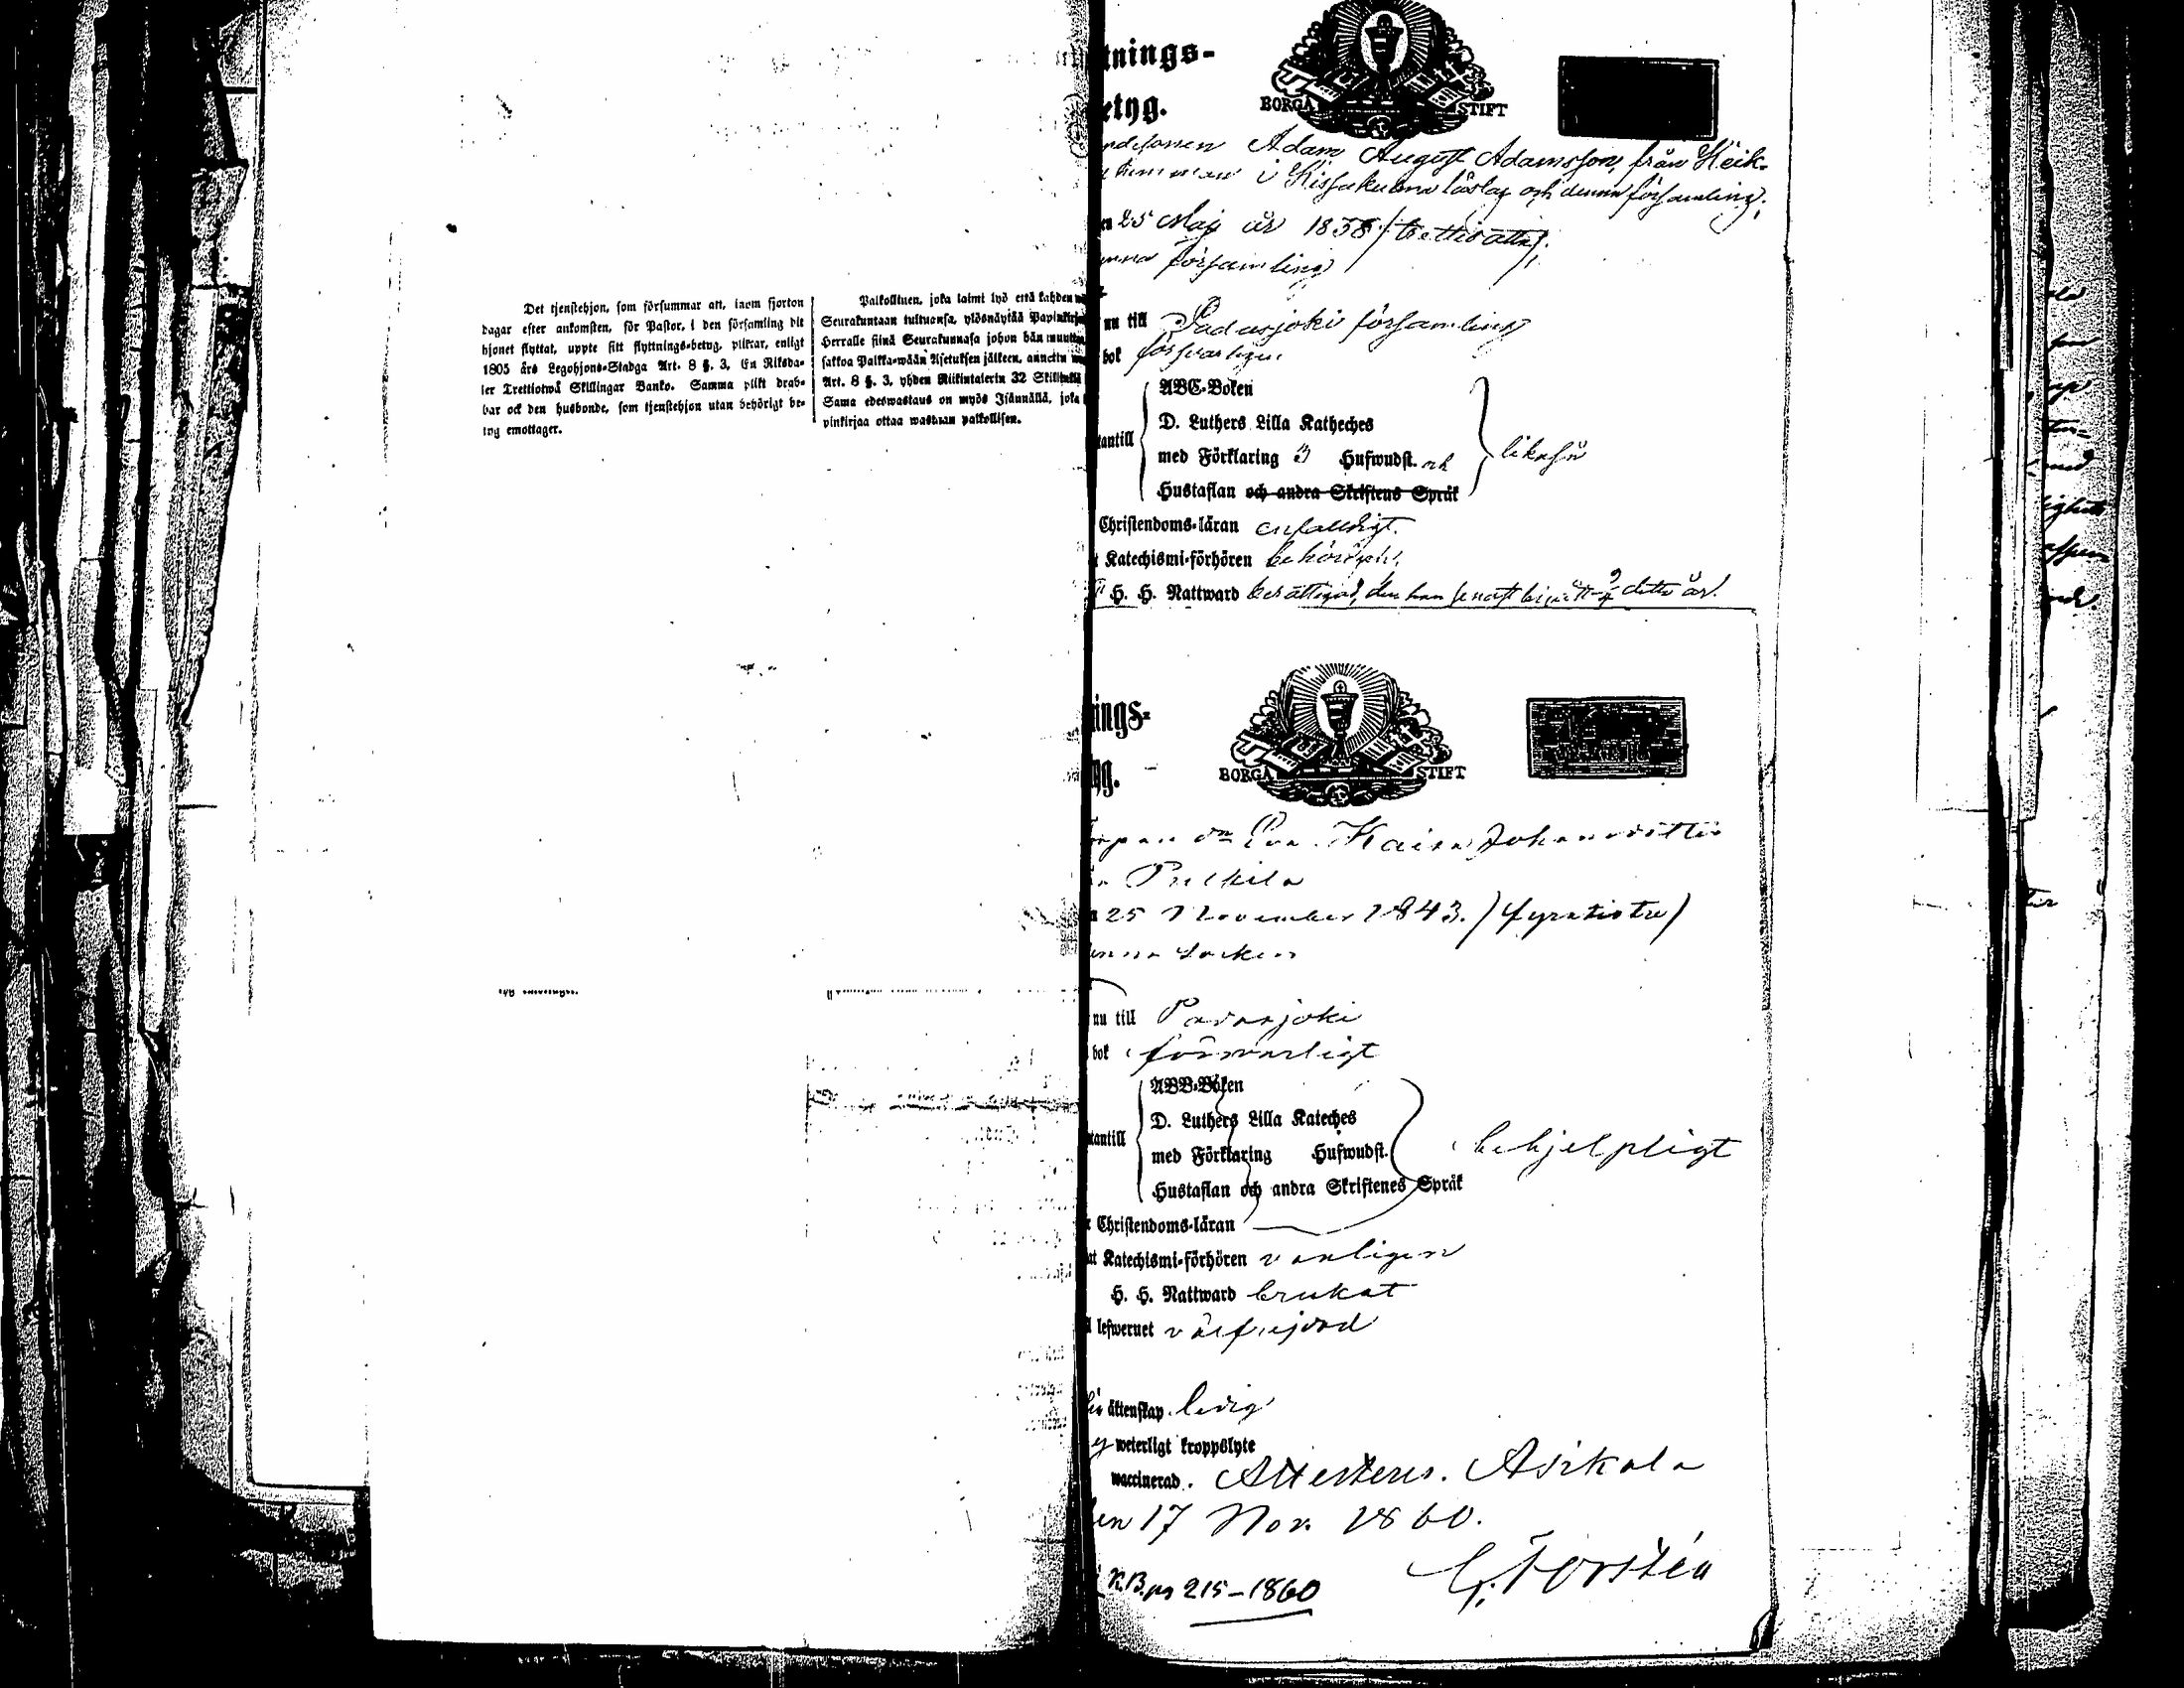 Det tjenstehjon, som försummar att, inom fjorton
dagar efter ankomsten, för Pastor, i den församling dit
hjonet flyttat, uppte sitt flyttnings-betyg, pliktar, enligt
1805 års Legohjons-Stadga Art. 8 §. 3, En Riksda-
ler Trettiotwå Skillingar Banko. Samma plikt drab-
bar ock den husbonde, som tjenstehjon utan behörigt be-
tyg emottager.
Palkollinen, joka laimi lyö että kahden
Seurakuntaan tultuansa, ylösnäyttää Papinkirja
Herralle siinä Seurakunnasa johon hän muutta
sakkoa Palkka-wään Asetuksen jälkeen, annettu
Art. 8 §. 3, yhden Riikintalerin 32 Skillinkiä
Sama edeswastaus on myös Isännällä, joka
pinkirjaa ottaa wastaan palkollisen.
tnings-
etyg.
BORGÅ STIFT
Adam August Adamsson, från Heik-
i Kissakulma låslag och denna församling,
en 25 Maj år 1838 (trettioåtta),
enna församling
nu till Padasjoki församling
bok försvarligen
ABC-Boken
D. Luthers Lilla Katheches
antill med Förklaring 3 Hufwudst. och
Hustaflan och andra Skriftens Språk
likaså
Christendoms-läran enfaldigt.
Katechismi-förhören behörigen,
H. H. Nattward berättigad, den han senast begått 9/4 detta år.
ings-
yg.
BORGÅ STIFT
Eva Kaisa Johansdotter
Pulkila
25 November 1843. (fyratiotre)
enna Socken
nu till Padasjoki
bok försvarligt
ABB-Boken
D. Luthers Lilla Kateches
antill med Förklaring Hufwudst.
Hustaflan och andra Skriftenes Språk
behjelpligt
Christendoms-läran
at Katechismi-förhören vanligen
H. H. Nattward brukat
lefwernet välfrejdad
äktenskap ledig
ej weterligt kroppslyte
waccinerad. Attesteras. Asikkala
den 17 Nov. 1860.
G. Forstén
K.B. pag 215-1860